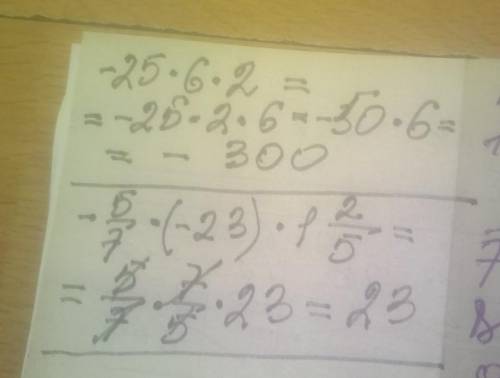 -25·6·2 =
= -25·2·6 = -50·6 =
= - 300
-5/7·(-23)·1 2/5 =
= 5/7·7/5·23 = 23